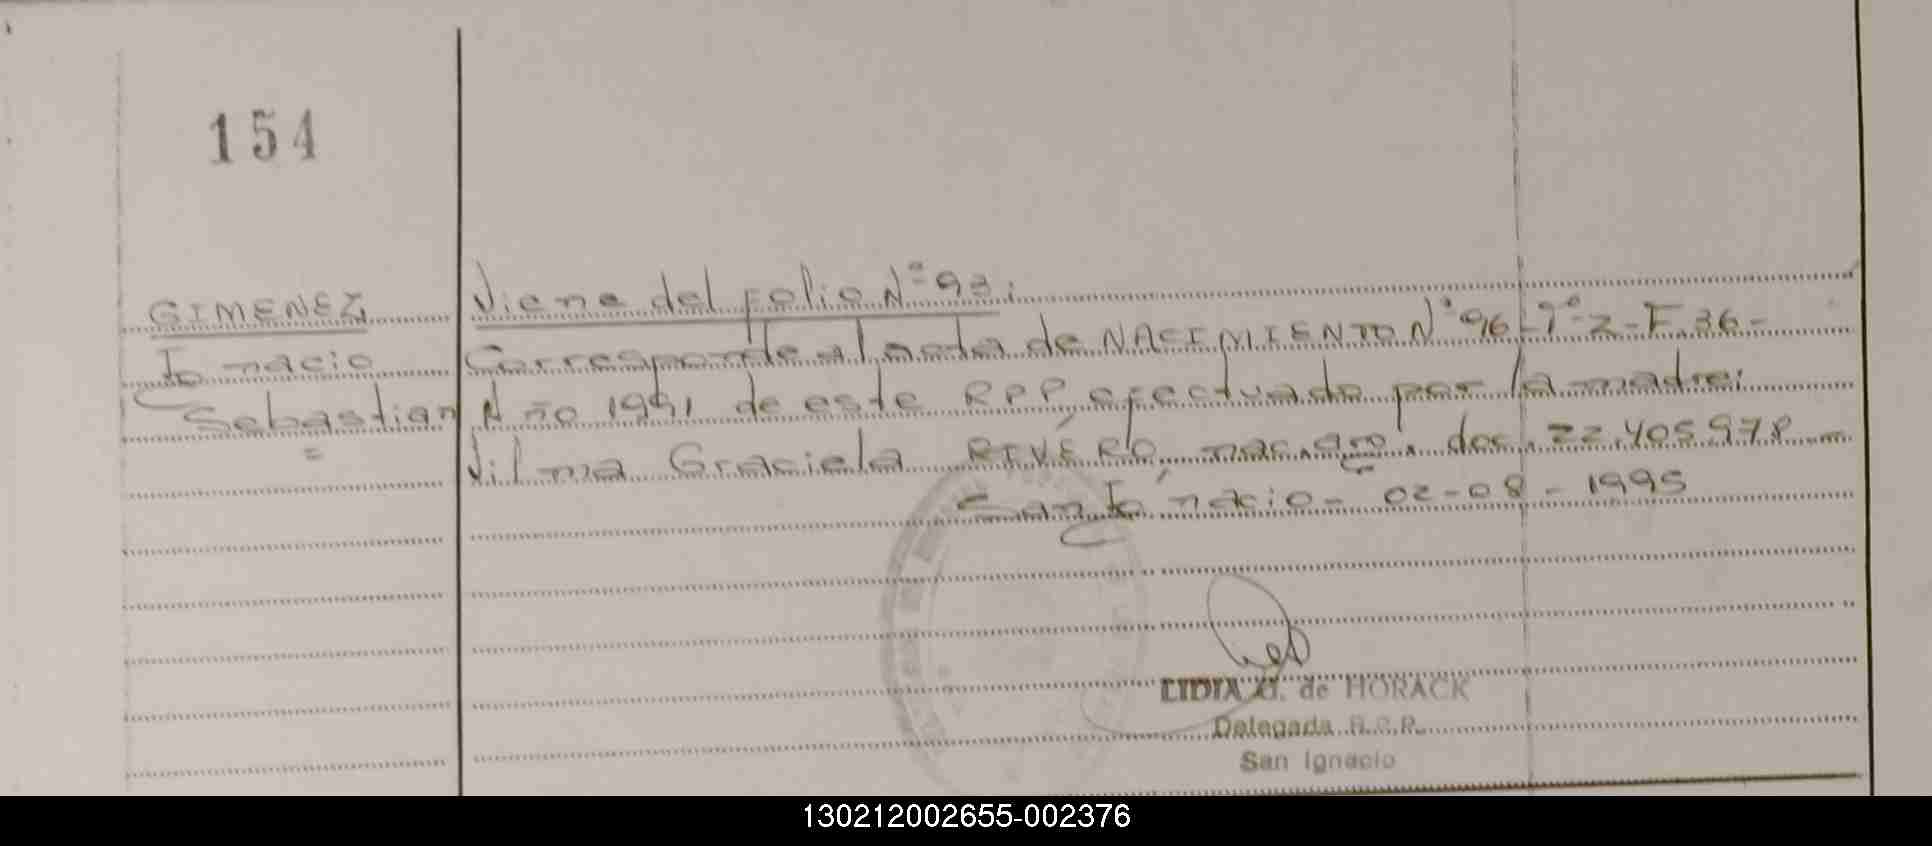 154
GIMENEZ
Ignacio
Sebastian
=
Viene del folio Nº 93:
Corresponde al acta de NACIMIENTO Nº 96-Tº 2-F. 36-
Año 1991 de este RPP, efectuado por la madre:
Vilma Graciela RIVERO, nac. arg. doc. 22.405.978.-
San Ignacio- 02-08-1995
LIDIA G. de HORACK
Delegada R.C.P.
San Ignacio
130212002655-002376